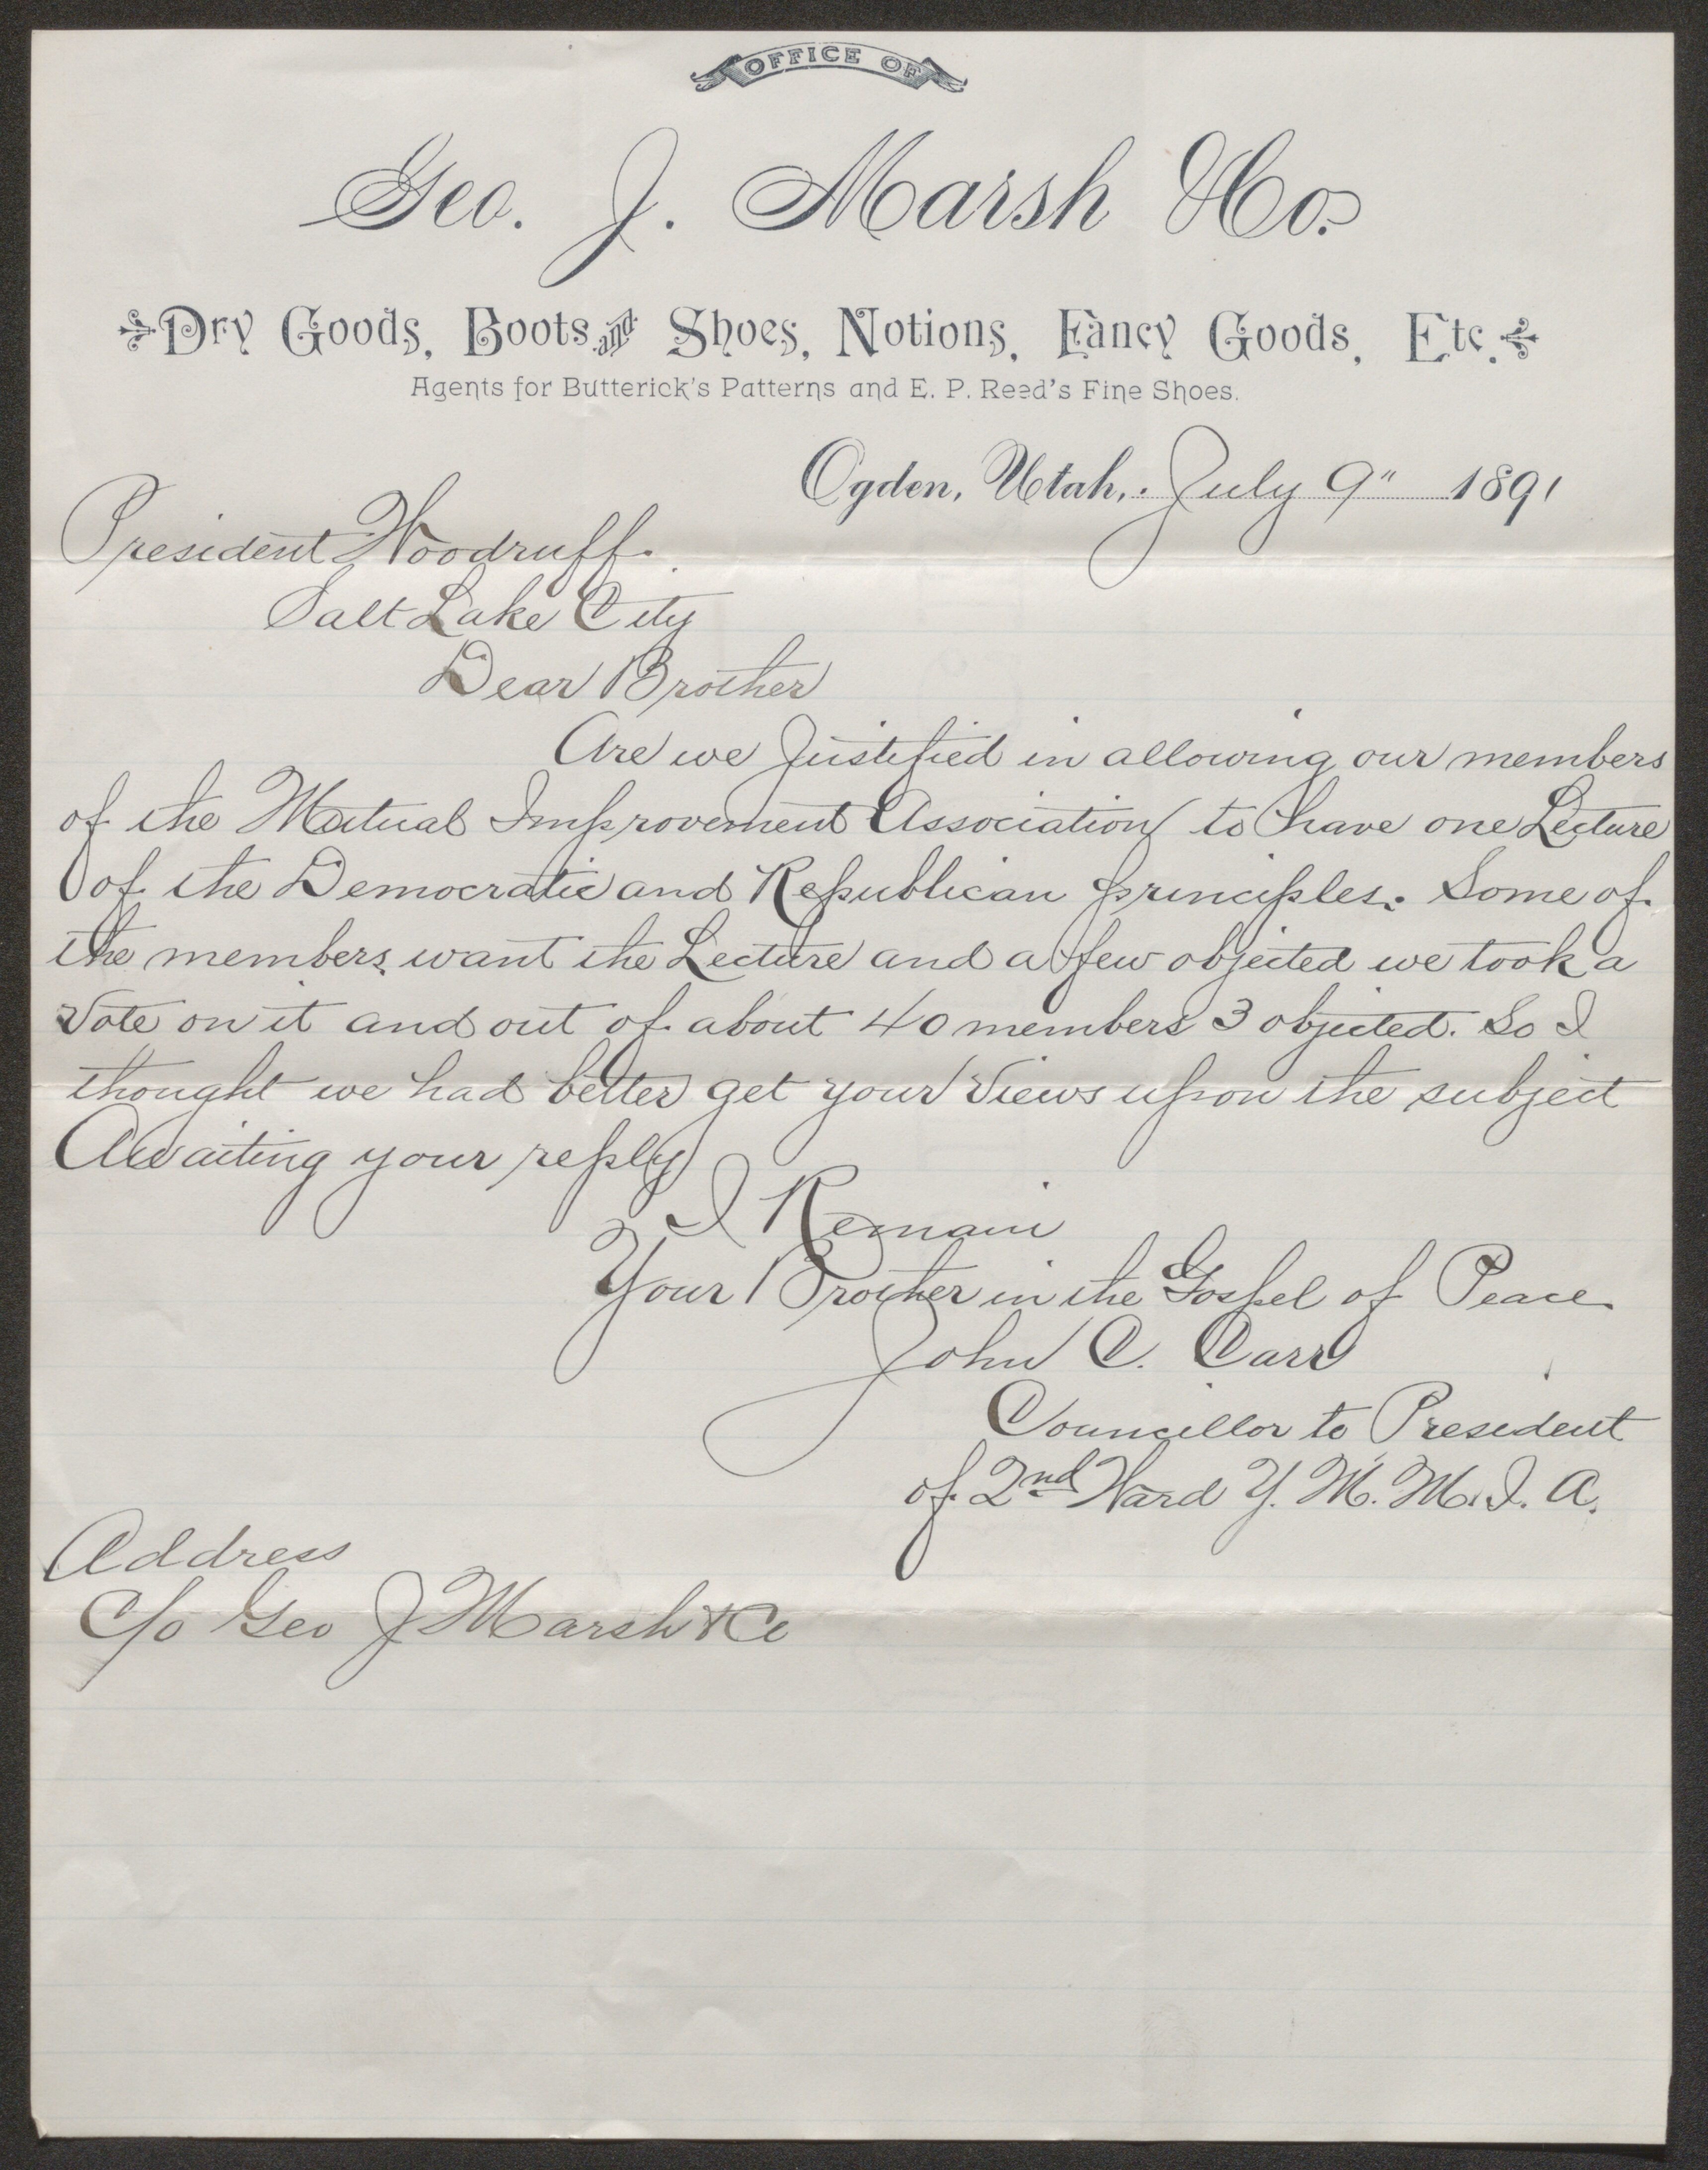 OFFICE OF
Geo. J. Marsh & Co.
Dry Goods, Boots and Shoes, Notions, Fancy Goods, Etc.
Agents for Butterick's Patterns and E. P. Reed's Fine Shoes.
Ogden, Utah, July 9" 1891
President Woodruff.
Salt Lake City
Dear Brother
Are we Justified in allowing our members
of the Mutual Improvement Association to have one Lecture
of the Democratic and Republican principles. Some of
the members want the Lecture and a few objected we took a
Vote on it and out of about 40 members 3 objected. So I
thought we had better get your Views upon the subject
Awaiting your reply
I Remain
Your Brother in the Gospel of Peace
John C. Carr
Councillor to President
of 2nd Ward Y. M. M. I. A.
Address
C/o Geo J Marsh & Co